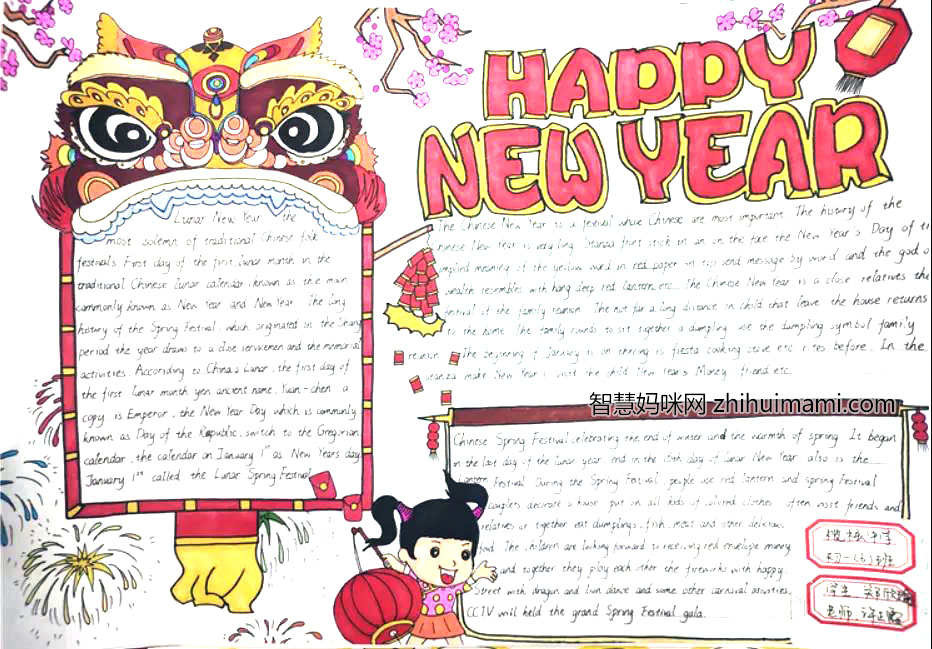 HAPPY
NEW YEAR
Lunar New Year the
most solemn of traditional Chinese folk
festivals First day of the first lunar month in the
traditional Chinese lunar calendar, known as the main
commonly known as New Year and New Year The long
history of the Spring Festival, which originated in the Shang
period the year draws to a close and the memorial
activities. According to China's Lunar, the first day of
the first lunar month yen ancient name, Yuan-chen a
copy, is Emperor, the New Year Day which is commonly
known as Day of the Republic, switch to the Gregorian
calendar, the calendar on January 1st as New Years day
January 1st called the Lunar Spring Festival
The Chinese New Year is a festival Chinese are most important The history of the
Chinese New Year is very long Stanza front stick in an on the face the New Year's Day of
meaning of the yellow word in red paper in tip send message by word and the god o
wealth resembles with hang deep red Lantern etc... The Chinese New Year is a close relatives the
festival of the family reunion The not far a long distance in child that leave the house returns
to the home The family rounds to sit together a dumpling use the dumpling symbol family
reunion The beginning of January is on is fiesta cooking stove etc rites before. In the
stanza make New Year's visit the child New Year's Money friend etc
智慧妈咪网 zhihuimami.com
Chinese Spring Festival celebrating the end of winter and the warmth of spring. It began
in the last day of the lunar year, end in the 15th day of lunar New Year also is the
Lantern Festival During the Spring Festival, people use red lantern and spring Festival
couplets decorate a house put on all kids of colored clothes often visit friends and
relatives or together eat dumplings, fish, meat and other delicious
food The children are looking forward to receiving red envelope money
and together they play each other the fireworks with happy.
Street with dragon and lion dance and some other carnival activities,
CCTV will held the grand Spring Festival gala.
学生
老师